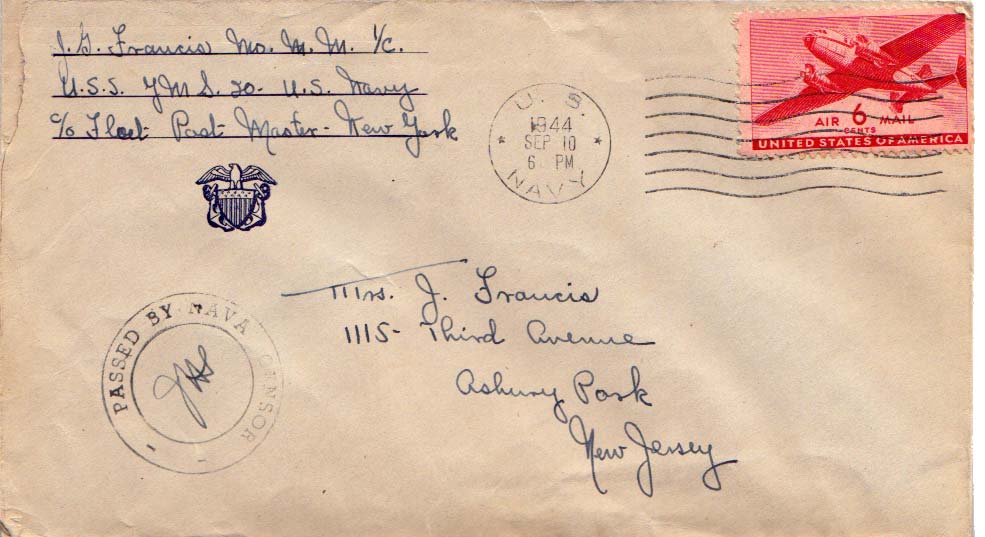 J. G. Francis Mo. M. M. 1/c.
U.S.S. YMS. 20- U.S. Navy
c/o Fleet Post Master- New York
U. S.
1944
SEP 10
6 PM
NAVY
AIR 6 MAIL
CENTS
UNITED STATES OF AMERICA
Mrs. J. Francis
1115- Third Avenue
Asbury Park
New Jersey
PASSED BY NAVA CENSOR